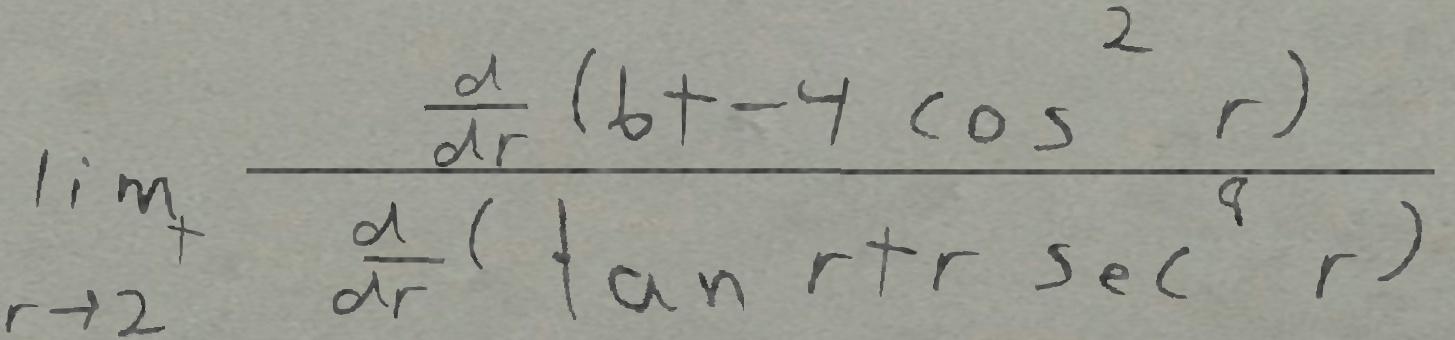 \lim_{r \to 2^+} \frac{\frac{d}{dr}(6 + -4 \cos^2 r)}{\frac{d}{dr}(\tan r + r \sec^8 r)}